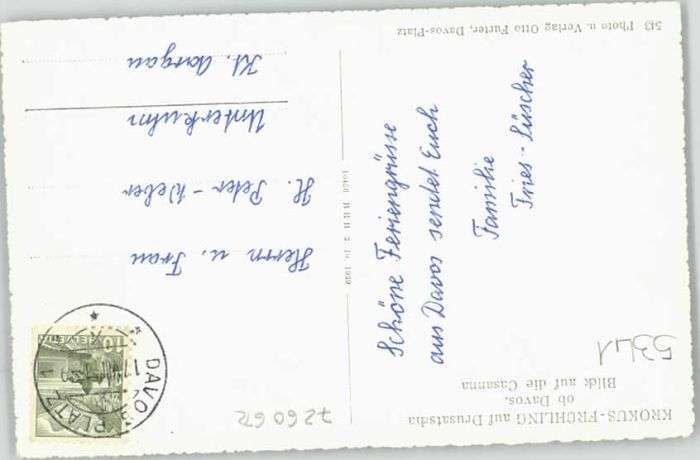 KROKUS-FRÜHLING auf Drusatscha
ob Davos.
Blick auf die Casanna
5341
Schöne Feriengrüsse
aus Davos sendet Euch
Familie
Fries-Lüscher
543 Photo u. Verlag Otto Furter, Davos-Platz
HELVETIA
10
DAVOS PLATZ 1
Herrn u. Frau
H. Peter-Weber
Unterkulm
Kt. Aargau
726062